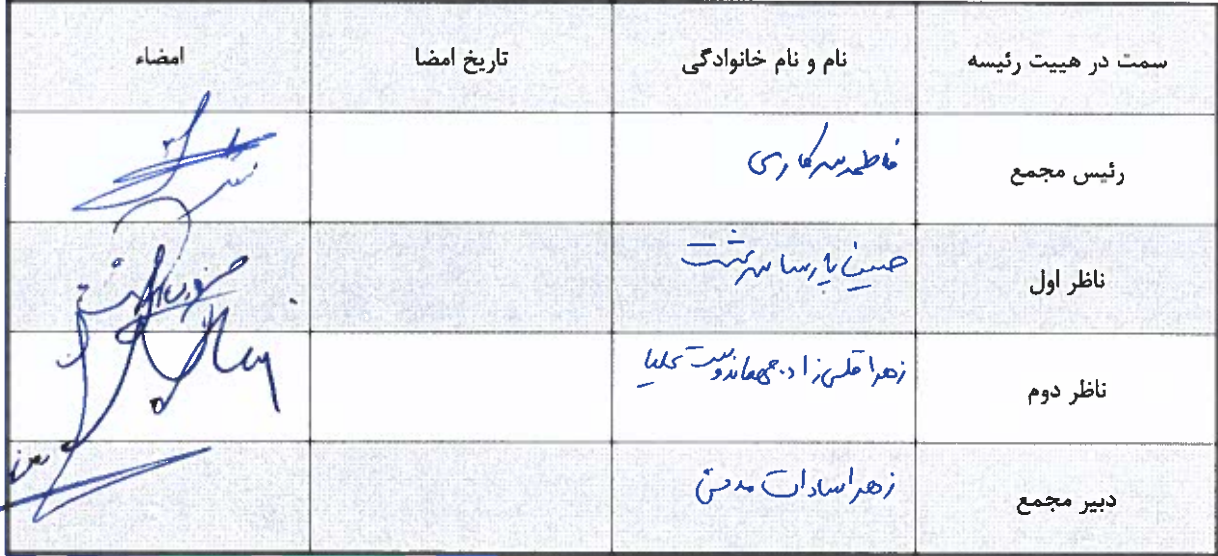 سمت در هییت رئیسه نام و نام خانوادگی تاریخ امضا امضاء
رئیس مجمع فاطمه سرکارسی
ناظر اول حسینا پارسا سرشت
ناظر دوم زهرا قلی زاد
دبیر مجمع زهرا سادات